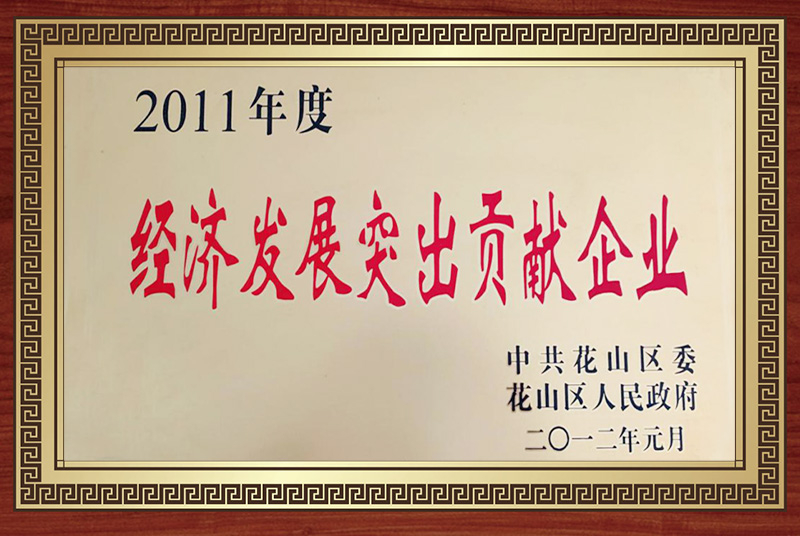 2011年度
经济发展突出贡献企业
中共花山区委
花山区人民政府
二〇一二年元月